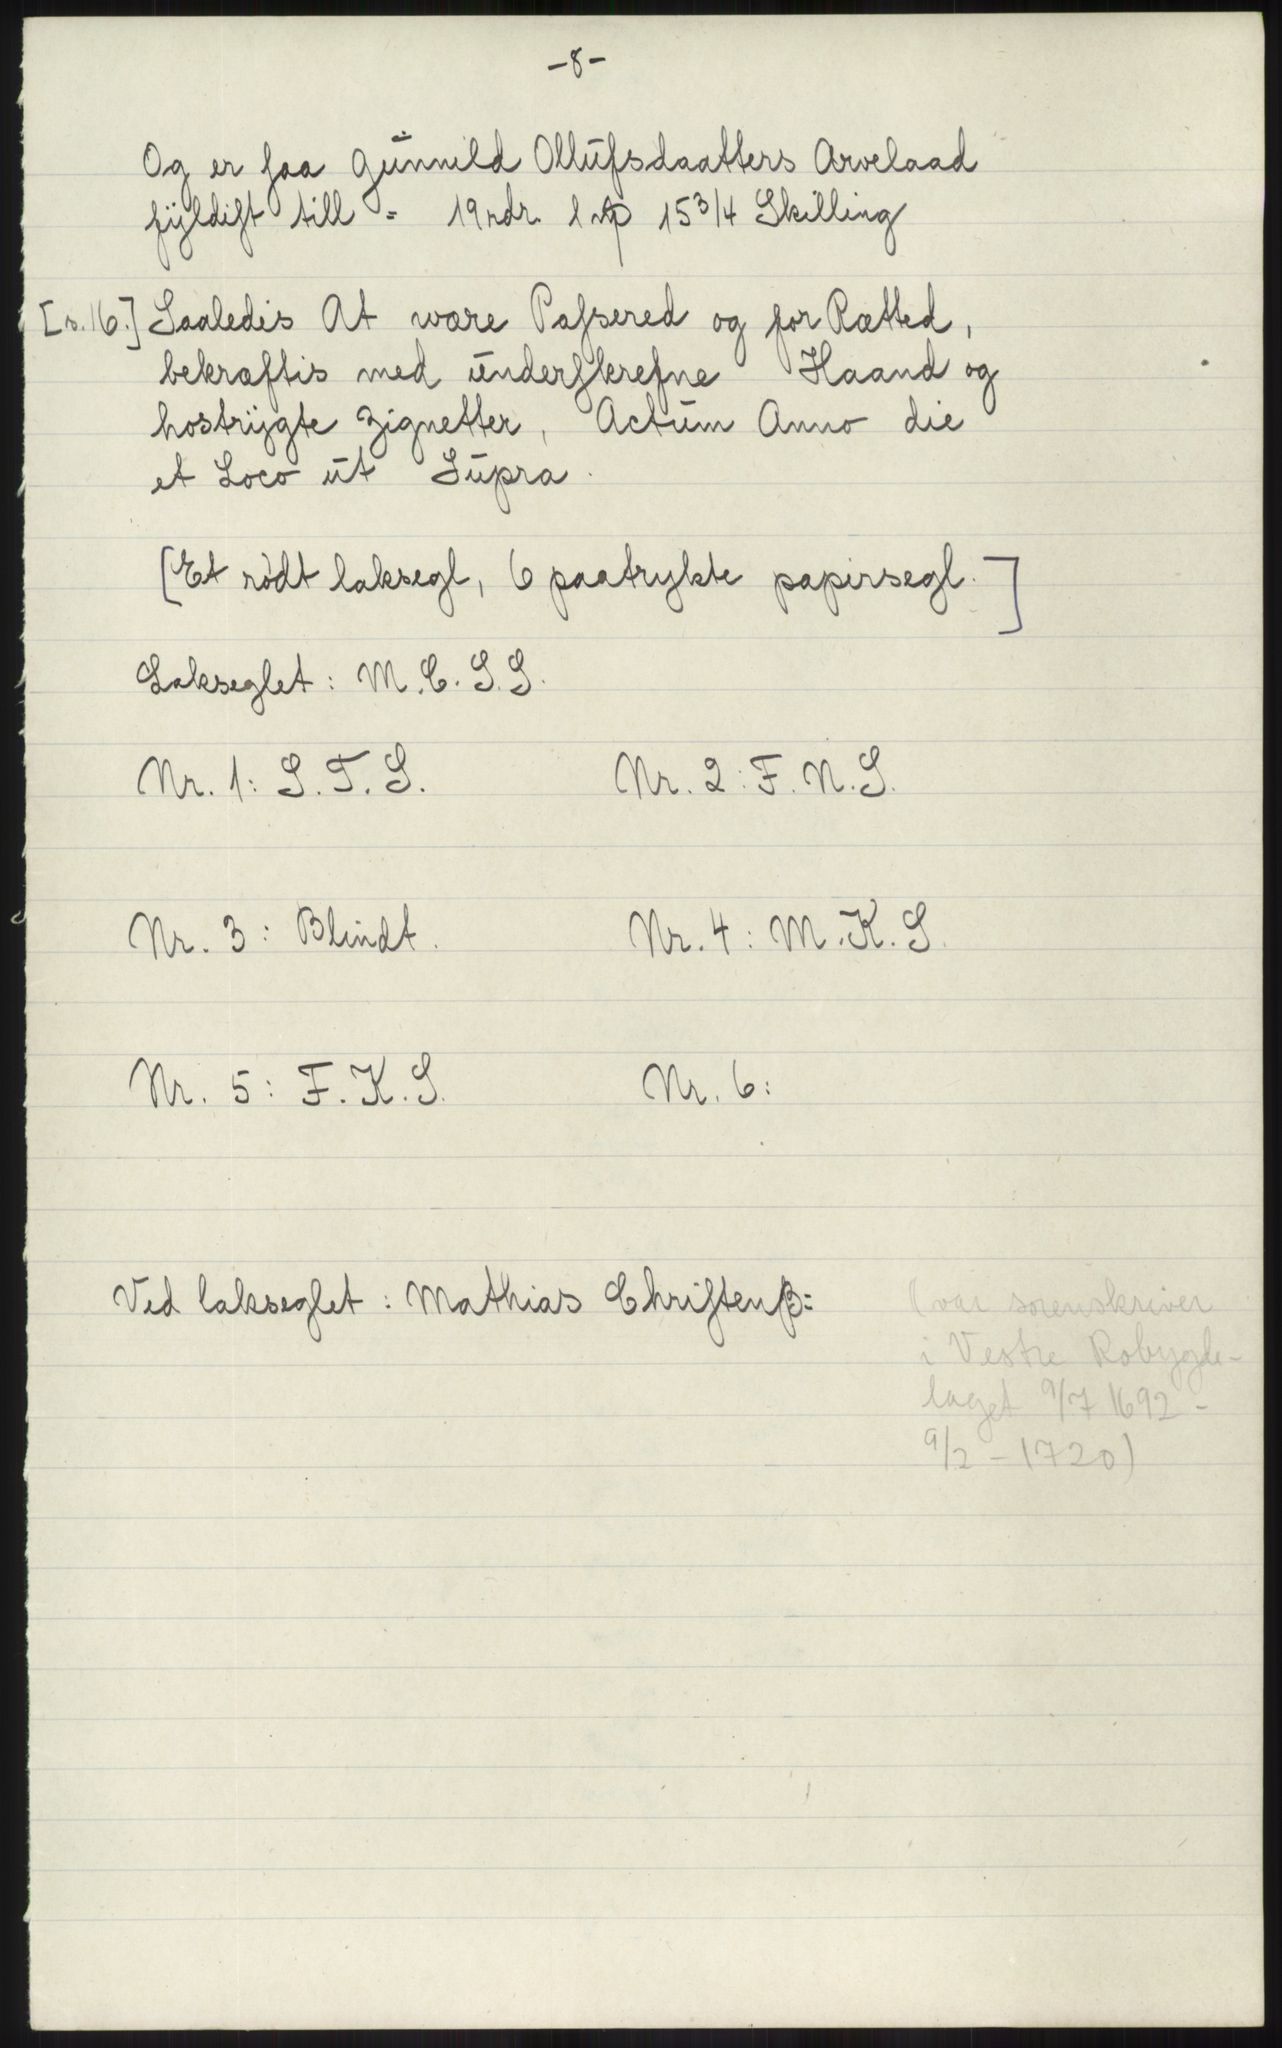 -8-
Og er saa Gunnild Ollufsdaatters Arvelaad
fyldist till = 19 rdr. 1 15 3/4 Skilling
[s. 16.] Saaledis At være Passered og for Rætted,
bekræftis med underskrefne Haand og
hostrygte Zignetter, Actum Anno die
et Loco ut Supra.
[Et rødt laksegl, 6 paatrykte papirsegl.]
Lakseglet: M.C.S.S.
Nr. 1: S.T.S. Nr. 2: F.N.S.
Nr. 3: Blindt. Nr. 4: M.K.S.
Nr. 5: F.K.S. Nr. 6:
Ved lakseglet: Mathias Christenß:
(var sorenskriver
i Vestre Robygde-
laget 9/7 1692 -
9/2 - 1720)